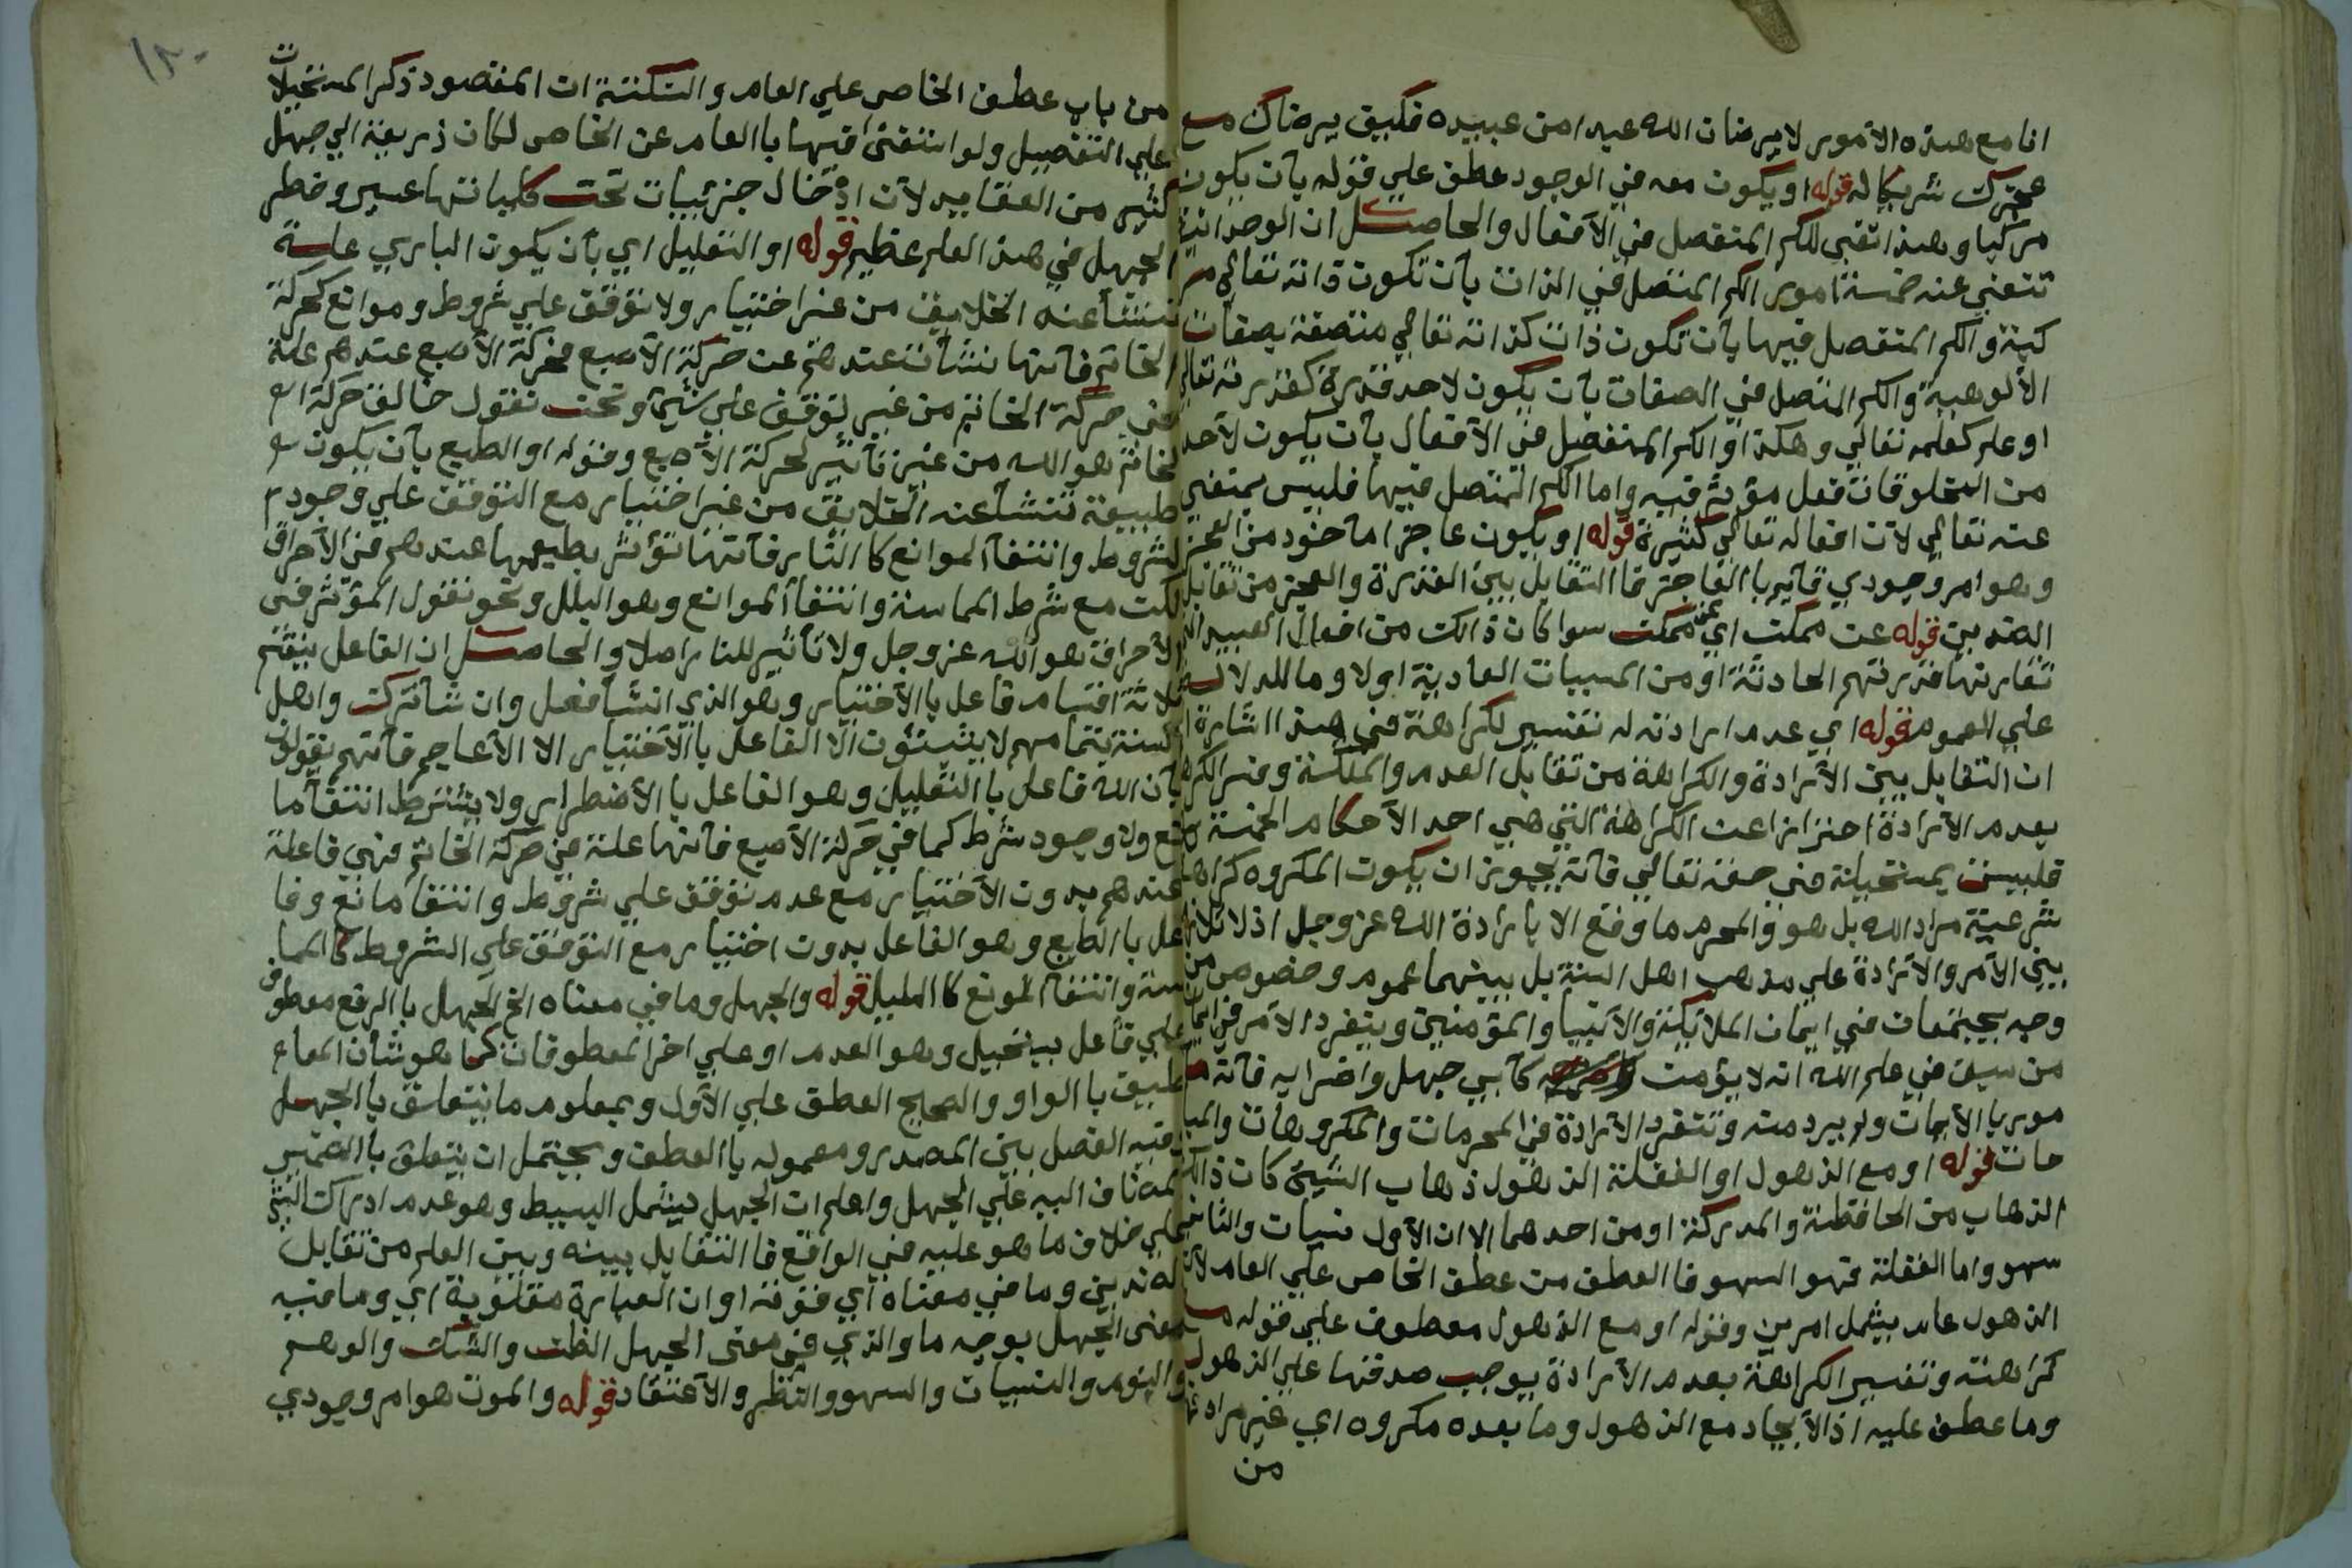 انا مع هذه الأمور لا يرضا ان الله عبدا من عبيده فكيف يرضاك مع
عجزك شريكا له قوله او يكون معه في الوجود عطف علي قوله بأن يكون
مركبا وهذا تقي للكم المنفصل في الأفعال والحاصل ان الوحدانية
تنفي عنه خمسة امور الكم المتصل في الذات بأن تكون ذاته تعالى مر
كبة والكم المنفصل فيها بأن تكون ذات كذاته تعالي متصفة بصفات
الألوهية والكم المتصل في الصفات بأن يكون لاحد قدرة كقدرته تعالي
او علم كعلمه تعالي وهكذا والكم المنفصل في الأفعال بأن يكون لأحد
من المخلوقات فعل مؤثر فيه واما الكم المتصل فيها فليس بمنفي
عنه تعالي لأن افعاله تعالي كثيرة قوله او يكون عاجزا مأخوذ من العجز
وهو امر وجودي قائم باالعاجز فا التقابل بين القدرة والعجز من تقابل
الضدين قوله عن ممكن اي عن ممكن سوا كان ذالك من افعال العبيد
تقارنها قدرتهم الحادثة او من المسببات العادية اولا وما للدلالة
علي العموم قوله اي عدم ارادته له تفسير لكراهة في هذا اشارة ا
ان التقابل بين الأرادة والكراهة من تقابل العدم والملكة وفسر الكراهة
بعدم الأرادة احترازا عن الكراهة التي هي احد الأحكام الخمسة
فليست بمستحيلة في حقه تعالي فأنه يجوز ان يكون المكروه كراهة
شرعية مراد الله بل هو والمحرم ما وقع الا بأرادة الله عز وجل اذ لا تلازم
بين الأمر والأرادة علي مذهب اهل السنة بل بينهما عموم وخصوص من
وجه يجتمعان في ايمان الملائكة والأنبيا والمؤمنين وينفرد الأمر في ايمان
من سبق في علم الله انه لا يؤمن كأبي جهل واضرابه فأنه مأ
مور باالأيمان ولم يرد منه وتنفرد الأرادة في المحرمات والمكروهات والمبا
حات قوله او مع الذهول او الغفلة الذهول ذهاب الشيئ كان ذالك
الذهاب من الحافظة والمدركة او من احدهما الا ان الأول نسيان والثاني
سهو واما الغفلة فهو السهو فا العطف من عطف الخاص علي العام لأن
الذهول عام يشمل امرين وقوله او مع الذهول معطوف علي قوله مع
كراهته وتفسير الكراهة بعدم الأرادة يوجب صدقها علي الذهول
وما عطف عليه اذ الأيجاد مع الذهول وما بعده مكروه اي غير مراد
من
١٢٠
من باب عطف الخاص علي العام والنكتة ان المقصود ذكر المستحيلات
علي التفصيل ولو استغنى فيها باالعام عن الخاص لكان ذريعة الي جهل
كثير من العقايد لأن ادخال جزئيات تحت كلياتها عسير وخطر
الجهل في هذا العلم عظيم قوله او التعليل اي بأن يكون الباري علة
تنشأ عنه الخلايق من غير اختيار ولا توقف علي شروط وموانع كحركة
الخاتم فأنها نشأت عندهم عن حركة الأصبع فحركة الأصبع عندهم علة
في حركة الخاتم من غير توقف علي شيئ ونحن نقول خالق حركة ا
لخاتم هو الله من غير تأثير لحركة الأصبع وقوله او الطبع بأن يكون
طبيعة تنشأ عنه الخلايق من غير اختيار مع التوقف علي وجود
لشروط وانتفاء الموانع كا النار فأنها تؤثر بطبعها عندهم في الأحراق
لكن مع شرط المماسة وانتفاء الموانع وهو البلل ونحو نقول المؤثر في
الأحراق هو الله عز وجل ولا تأثير للنار اصلا والحاصل ان الفاعل ينقسم
ثلاثة اقسام فاعل باالأختيار وهو الذي انشا فعل وان شا ترك واهل
السنة بتمامهم لا يثبتون الا الفاعل باالأختيار الا الأعاجم فأنهم يقولون
بأن الله فاعل باالتعليل وهو الفاعل باالأضطرار ولا يشترط انتفاء ما
نع ولا وجود شرط كما في حركة الأصبع فأنها علة في حركة الخاتم فهي فاعلة
عندهم بدون الأختيار مع عدم توقف علي شروط وانتفا مانع وفا
عل باالطبع وهو الفاعل بدون اختيار مع التوقف علي الشروط كا المما
سة وانتفاء المونع كا البلل قوله والجهل وما في معناه الخ الجهل باالرفع معطوف
علي فاعل يستحيل وهو العدم او علي اخر المعطوفات كما هو شأن المعا
طيف باالواو والصحيح العطف علي الأول وبمعلوم ما يتعلق باالجهل
وفيه الفصل بين المصدر ومعموله باالعطف ويحتمل ان يتعلق باالضمير
المضاف اليه علي الجهل واعلم ان الجهل يشمل البسيط وهو عدم ادراك الشئ
علي خلاف ما هو عليه في الواقع فا التقابل بينه وبين العلم من تقابل
الضدين وما في معناه اي قوته او ان العبارة مقلوبة اي وما فيه
معنى الجهل بوجه ما والذي في معنى الجهل الظن والشك والوهم
والنوم والنسيان والسهو والنظر والأعتقاد قوله والموت هو امر وجودي